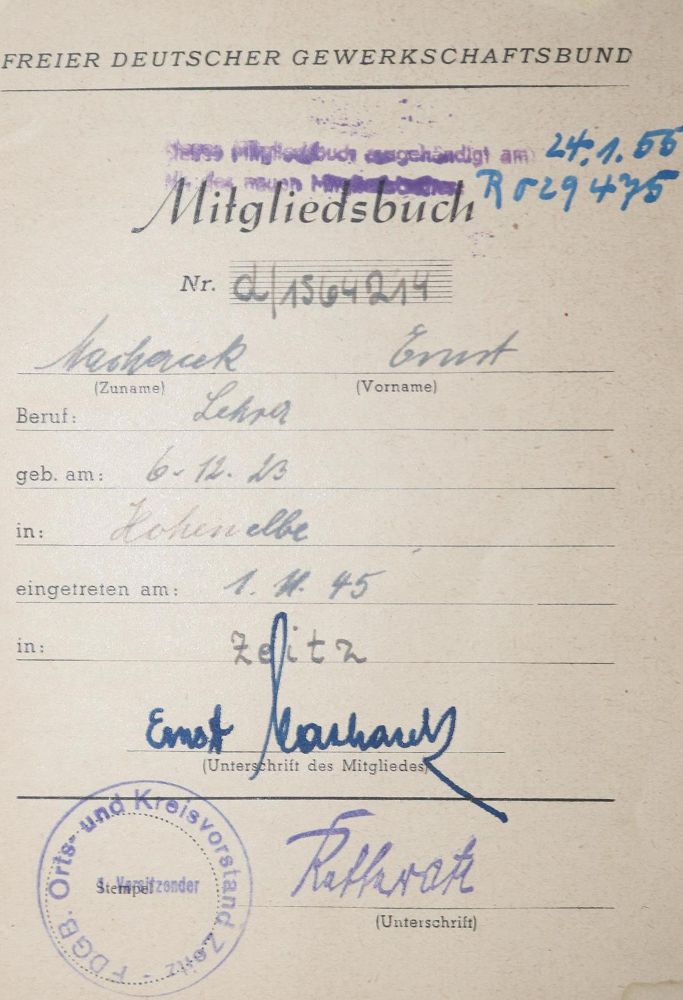 FREIER DEUTSCHER GEWERKSCHAFTSBUND
Mitgliedsbuch ausgehändigt am 24.1.55
Nr. des neuen R 029475
Mitgliedsbuch
Nr. d/1564214
Ernst
(Zuname) (Vorname)
Beruf: Lehrer
geb. am: 6-12.23
in: Hohenelbe
eingetreten am: 1. 11. 45
in: Zeitz
Ernst
(Unterschrift des Mitgliedes)
FDGB. Orts- und Kreisvorstand Zeitz -
Stempel
1. Vorsitzender
(Unterschrift)